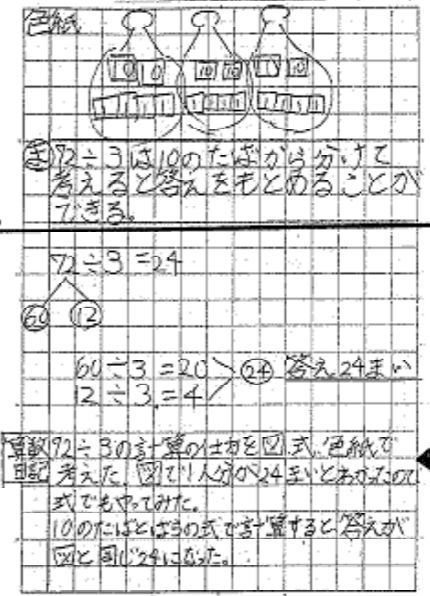 色紙
10 10 10 10 10 10
ま 72÷3は10のたばから分けて
考えると答えをもとめることが
できる。
72÷3=24
60 12
60÷3=20
12÷3=4
24 答え24まい
算数日記
72÷3の計算のしかたを図、式、色紙で
考えた。図で1人分が24まいとわかったので
式でもやってみた。
10のたばとばらの式で計算すると答えが
図と同じ24になった。